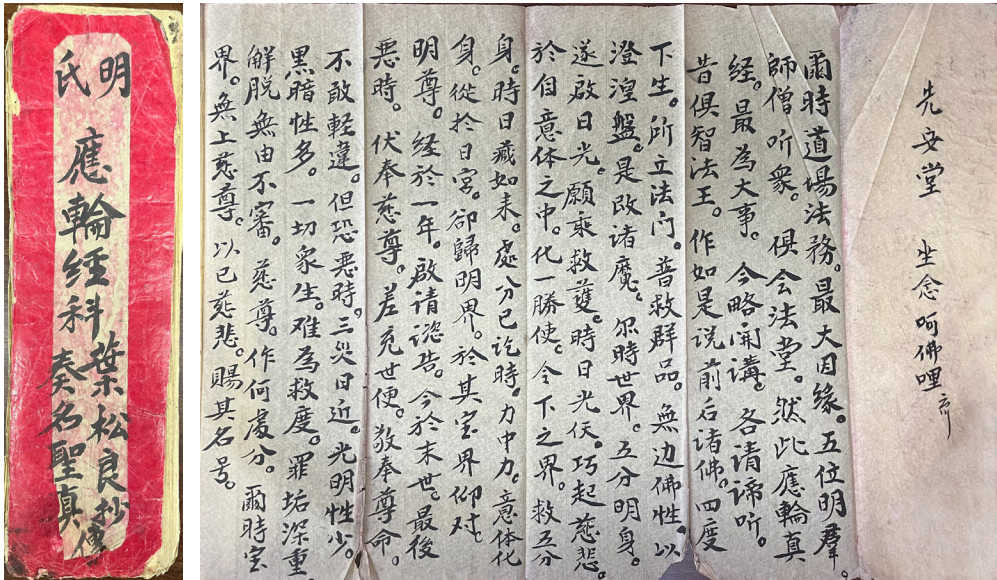 明氏
應輪经科
葉松良抄傳
奏名聖真
先安堂 坐念呵佛哩齐
爾時道場法務。最大因緣。五位明羣。
師僧听衆。俱会法堂。然此應輪真
経。最為大事。今略開講。各请谛听。
昔俱智法王。作如是说前后诸佛。四度
下生。所立法门。普救群品。無边佛性。以
澄湼盤。是故诸魔。尔時世界。五分明身。
遂啟日光。願乘救護。時日光仸。巧起慈悲
於自意体之中。化一勝使。令下之界。救五分
身。時日藏如来。處分已讫時。力中力。意体化
身。從於日宫。卻歸明界。於其宝界仰对。
明尊。経於一年。啟请諮告。今於末世。最後
悪時。伏奉慈尊。差充世使。敬奉尊命。
不敢輕違。但恐悪時。三災日近。光明性少。
黑暗性多。一切衆生。难為救度。罪垢深重
觧脱無由不審。慈尊。作何處分。爾時宝
界。無上慈尊。以已慈悲。賜其名号。